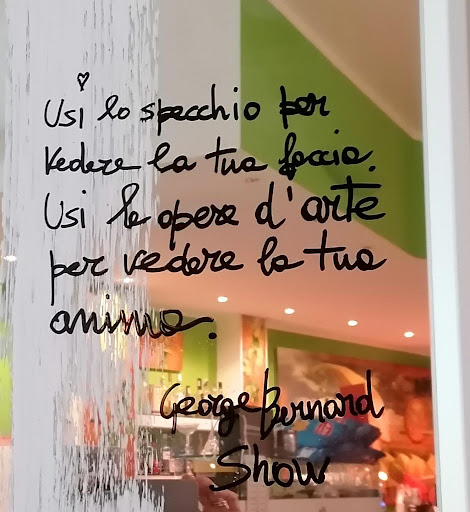 Usi lo specchio per
vedere la tua faccia.
Usi le opere d'arte
per vedere la tua
anima.
George Bernard
Show